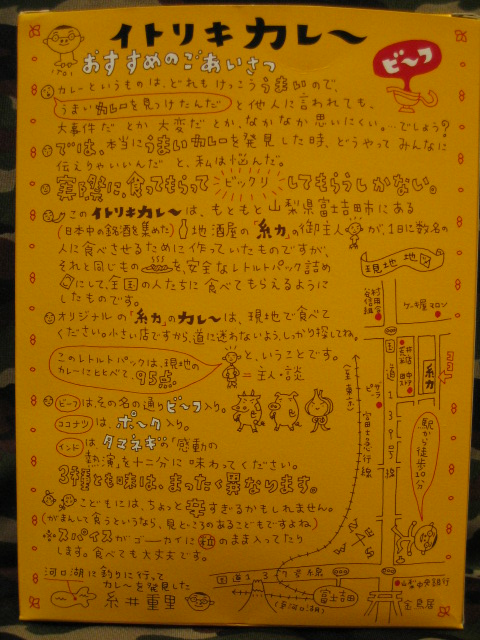 イトリキカレー
ビーフ
ITOI
おすすめのごあいさつ
カレーというものは、どれもけっこううまいので、
うまいカレーを見つけたんだ と他人に言われても、
大事件だ とか 大変だ とか、なかなか思いにくい。…でしょう?
では、本当にうまいカレーを発見した時、どうやって みんなに
伝えりゃいいんだ と、私は悩んだ。
実際に、食ってもらって ビックリ してもらうしかない。
このイトリキカレーは、もともと山梨県富士吉田市にある
(日本中の銘酒を集めた)地酒屋の「糸力」の御主人が、1日に数名の
人に食べさせるために作っていたものですが、
それと同じものを、安全なレトルトパック詰め
にして、全国の人たちに食べてもらえるように
したものです。
オリジナルの「糸力」のカレーは、現地で食べて
ください。小さい店ですから、道に迷わないよう、しっかり探してね。
このレトルトパックは、現地の
カレーにくらべて、95点。
と、いうことです。
=主人・談
ビーフは、その名の通りビーフ入り。
ココナツは、ポーク入り。
インドは タマネギの「感動の
熱演」を十二分に味わってください。
3種とも味は、まったく異なります。
こどもには、ちょっと辛すぎるかもしれません。
(がまんして食うというなら、見どころのあるこどもですよね)
※スパイスがゴーカイに粒のまま入ってたり
します。食べても大丈夫です。
河口湖に釣りに行って
カレーを発見した
糸井重里
現地地図
ケーキ屋マロン
糸力
国道139号線
ピザ
駅から徒歩10分
富士急行線
富士吉田
(至河口湖)
山梨中央銀行
金鳥居